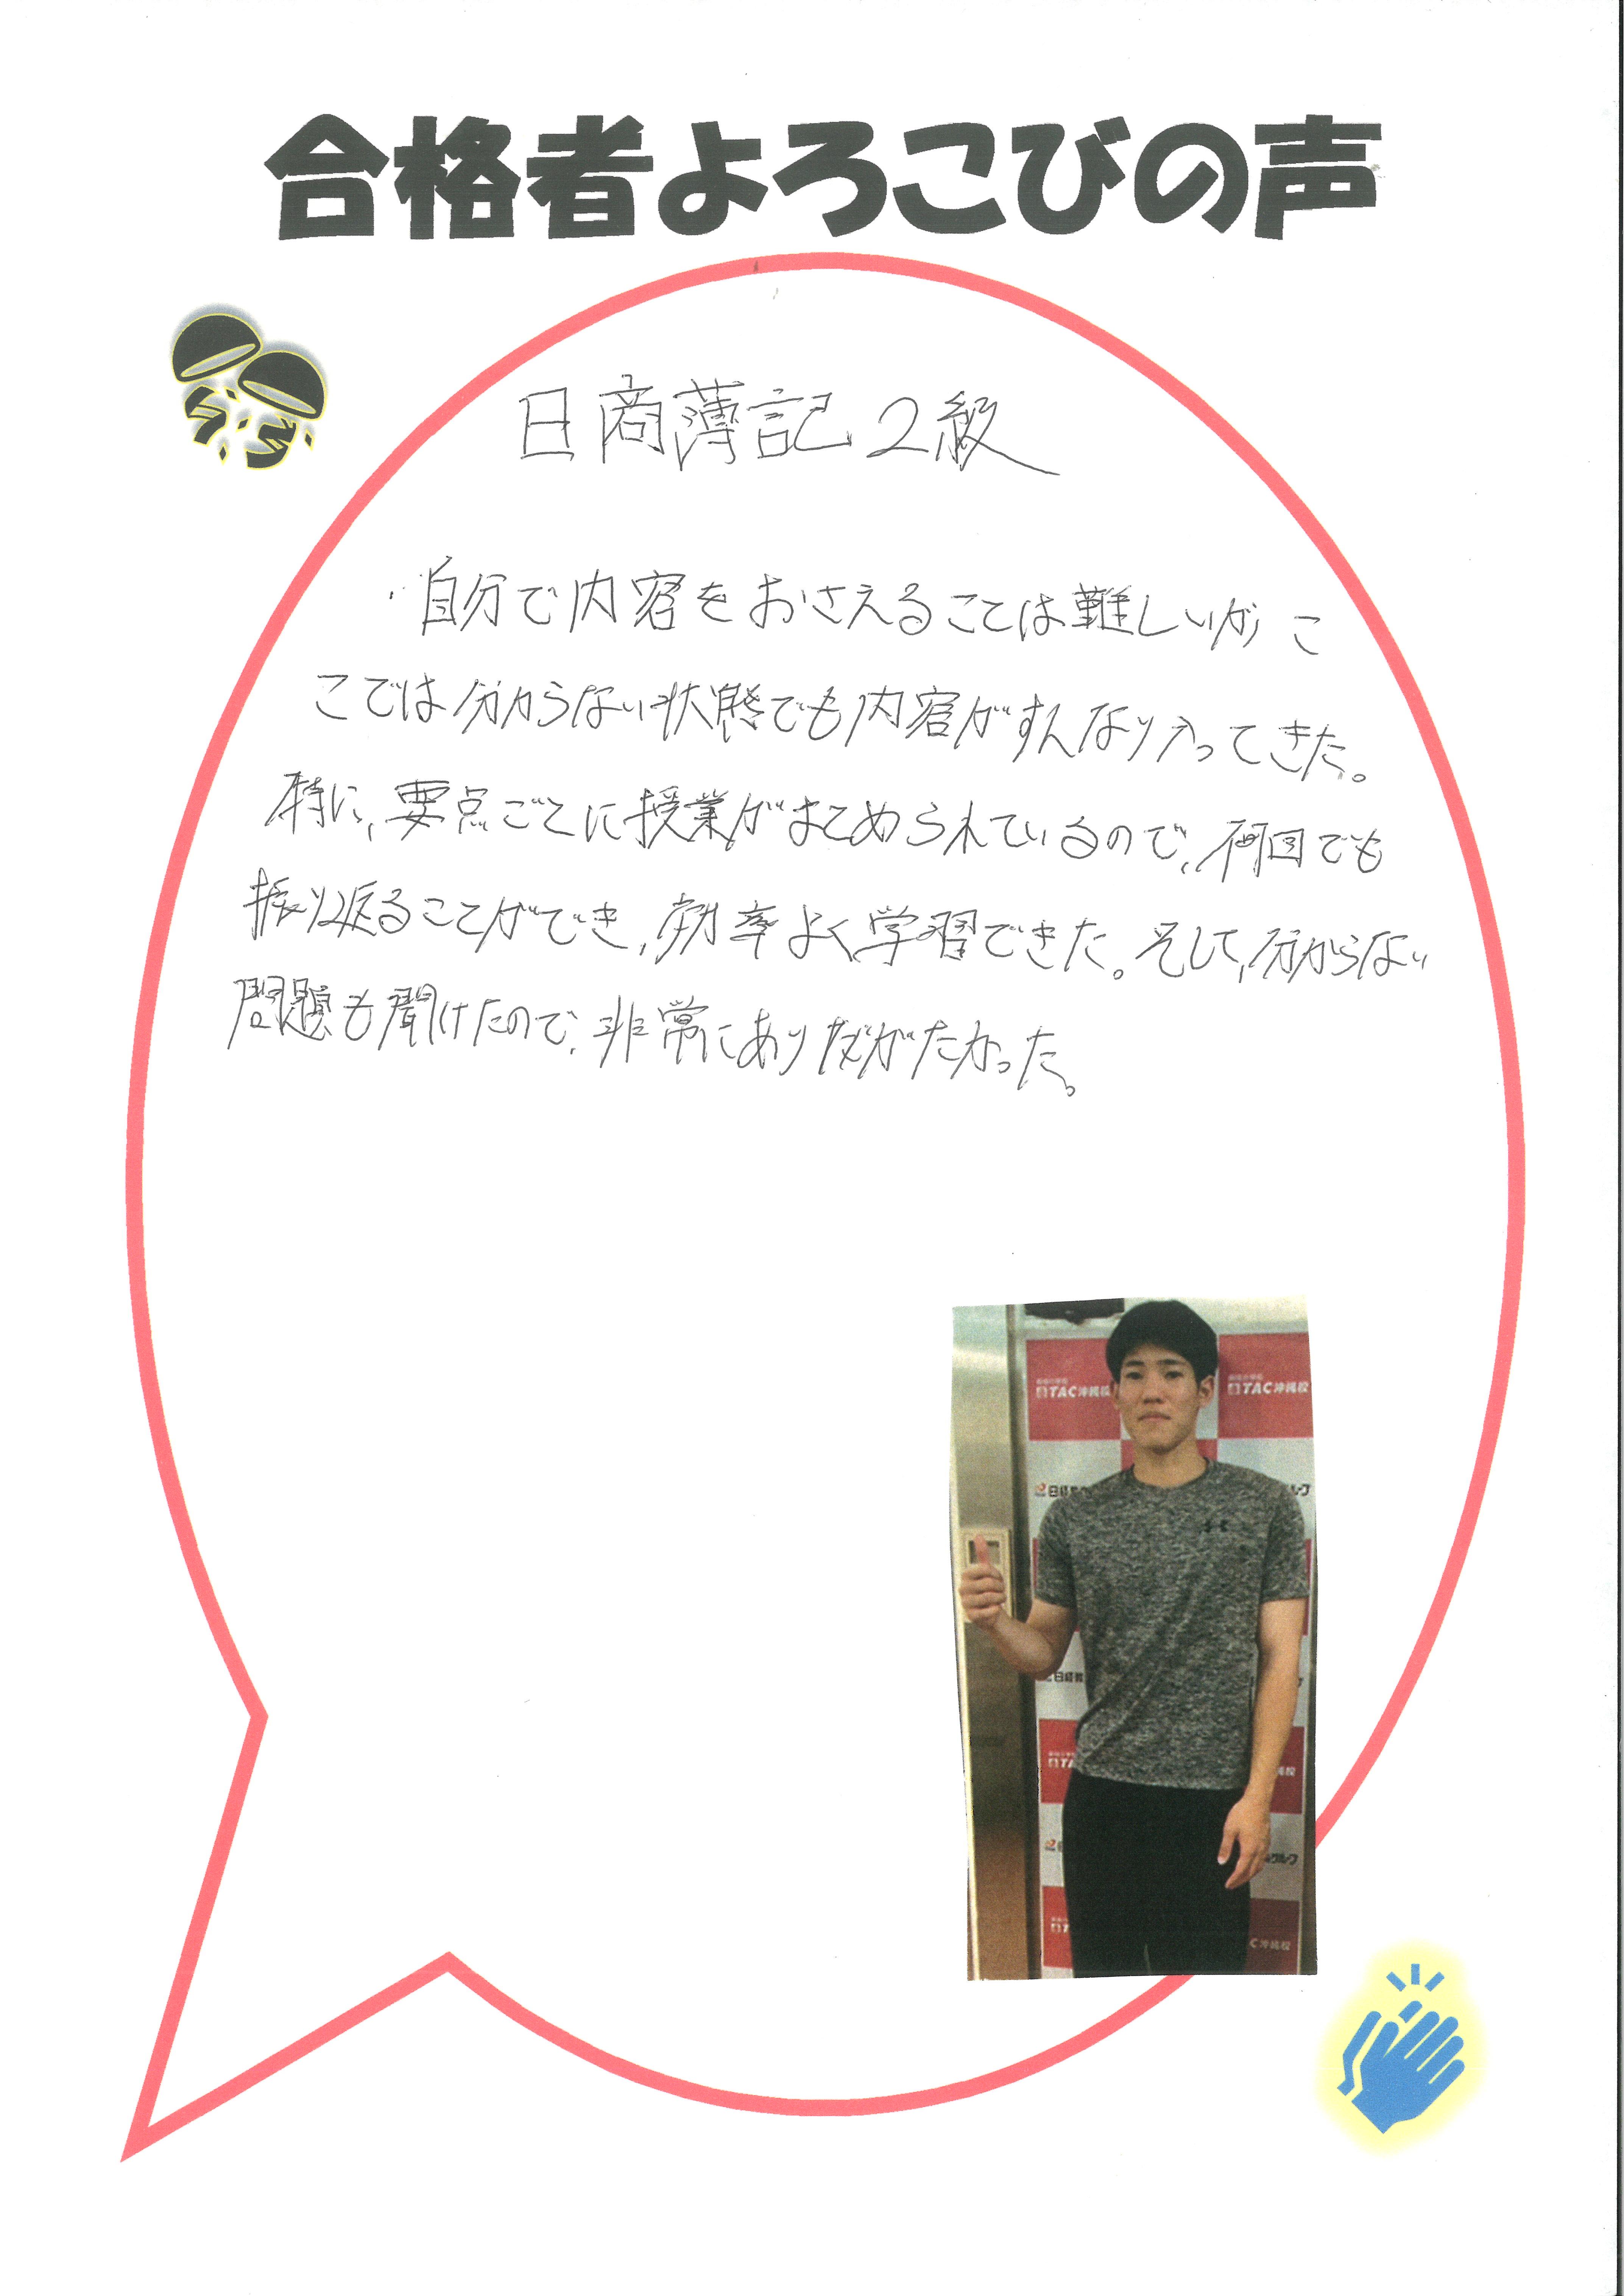 合格者よろこびの声
日商薄記2級
自分で内容をおさえることは難しいが こ
こでは分からない状態でも内容がすんなり入ってきた。
特に、要点ごとに授業がまとめられているので、何回でも
振り返ることができ、効率よく学習できた。そして、分からない
問題も聞けたので、非常にありだがたかった。
TAC沖縄校
TAC沖縄校
日経
ループ
日経教
TA
校
グループ
T
C沖縄校